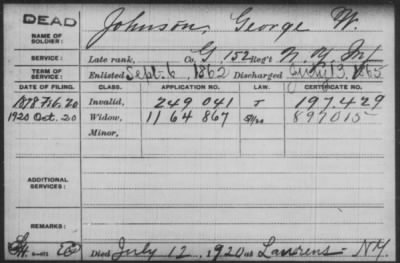 DEAD
NAME OF SOLDIER: Johnson, George W.
SERVICE: Late rank, Co. G, 152 Reg't N.Y. Inf
TERM OF SERVICE: Enlisted Sept. 6, 1862 Discharged July 13, 1865
DATE OF FILING. CLASS. APPLICATION NO. LAW. CERTIFICATE NO.
1878 Feb. 20 Invalid, 249 041 197.429
1920 Oct. 20 Widow, 11 64 867 897015
Minor,
ADDITIONAL SERVICES:
REMARKS:
Died July 12, 1920 at Laurens - N.Y.